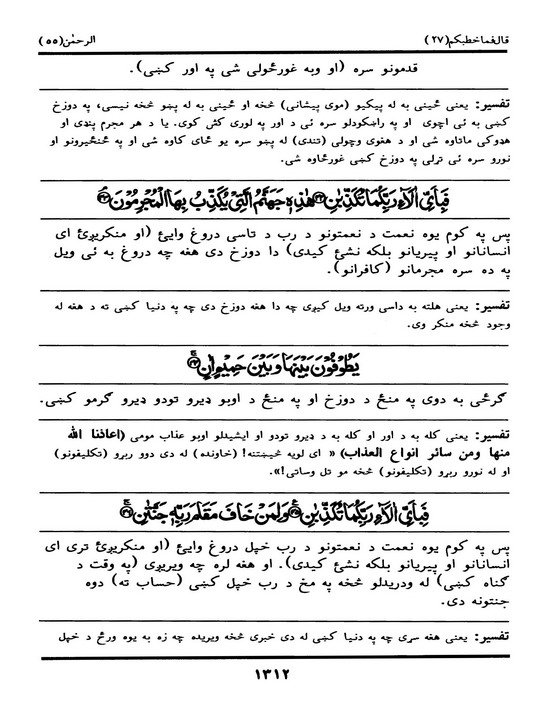 قال‌فماخطبکم(۲۷) الرحمٰن(۵۵)
قدمونو سره (او وبه غورځولی شی په اور کښی).
تفسیر: یعنی ځینی به له پیکیو (موی پیشانی) څخه او ځینی به له پښو څخه نیسی، په دوزخ
کښی به ئی اچوی او په راښکودلو سره ئی د اور په لوری کش کوی. یا د هر مجرم پنډی او
هډوکی ماتاوه شی او د هغوی وچولی (تندی) له پښو سره یو ځای کاوه شی او په ځنځیرونو او
نورو سره ئی تړلی په دوزخ کښی غورځاوه شی.
فَبِاَيِّ اٰلَآءِ رَبِّكُمَا تُكَذِّبٰنِ۝۴۲ هٰذِهٖ جَهَنَّمُ الَّتِيْ يُكَذِّبُ بِهَا الْمُجْرِمُوْنَ۝۴۳
پس په کوم یوه نعمت د نعمتونو د رب د تاسی دروغ وایئ (او منکریږئ ای
انسانانو او پیریانو بلکه نشئ کیدی) دا دوزخ دی هغه چه دروغ به ئی ویل
په ده سره مجرمانو (کافرانو).
تفسیر: یعنی هلته به داسی ورته ویل کیږی چه دا هغه دوزخ دی چه په دنیا کښی ته د هغه له
وجود څخه منکر وی.
يَطُوْفُوْنَ بَيْنَهَا وَبَيْنَ حَمِيْمٍ اٰنٍ۝۴۴
ګرځی به دوی په منځ د دوزخ او په منځ د اوبو ډیرو تودو ډیرو ګرمو کښی.
تفسیر: یعنی کله به د اور او کله به د ډیرو تودو او ایشیدلو اوبو عذاب مومی (اعاذنا الله
منها ومن سائر انواع العذاب) « ای لویه څیښتنه! (خاونده) له دی دوو ربړو (تکلیفونو)
او له نورو ربړو (تکلیفونو) څخه مو تل وساتی!».
فَبِاَيِّ اٰلَآءِ رَبِّكُمَا تُكَذِّبٰنِ۝۴۵ وَلِمَنْ خَافَ مَقَامَ رَبِّهٖ جَنَّتٰنِ۝۴۶
پس په کوم یوه نعمت د نعمتونو د رب خپل دروغ وایئ (او منکریږئ تری ای
انسانانو او پیریانو بلکه نشئ کیدی). او هغه لره چه ویریږی (په وقت د
ګناه کښی) له ودریدلو څخه په مخ د رب خپل کښی (حساب ته) دوه
جنتونه دی.
تفسیر: یعنی هغه سړی چه په دنیا کښی له دی خبری څخه ویریده چه زه به یوه ورځ د خپل
۱۳۱۲